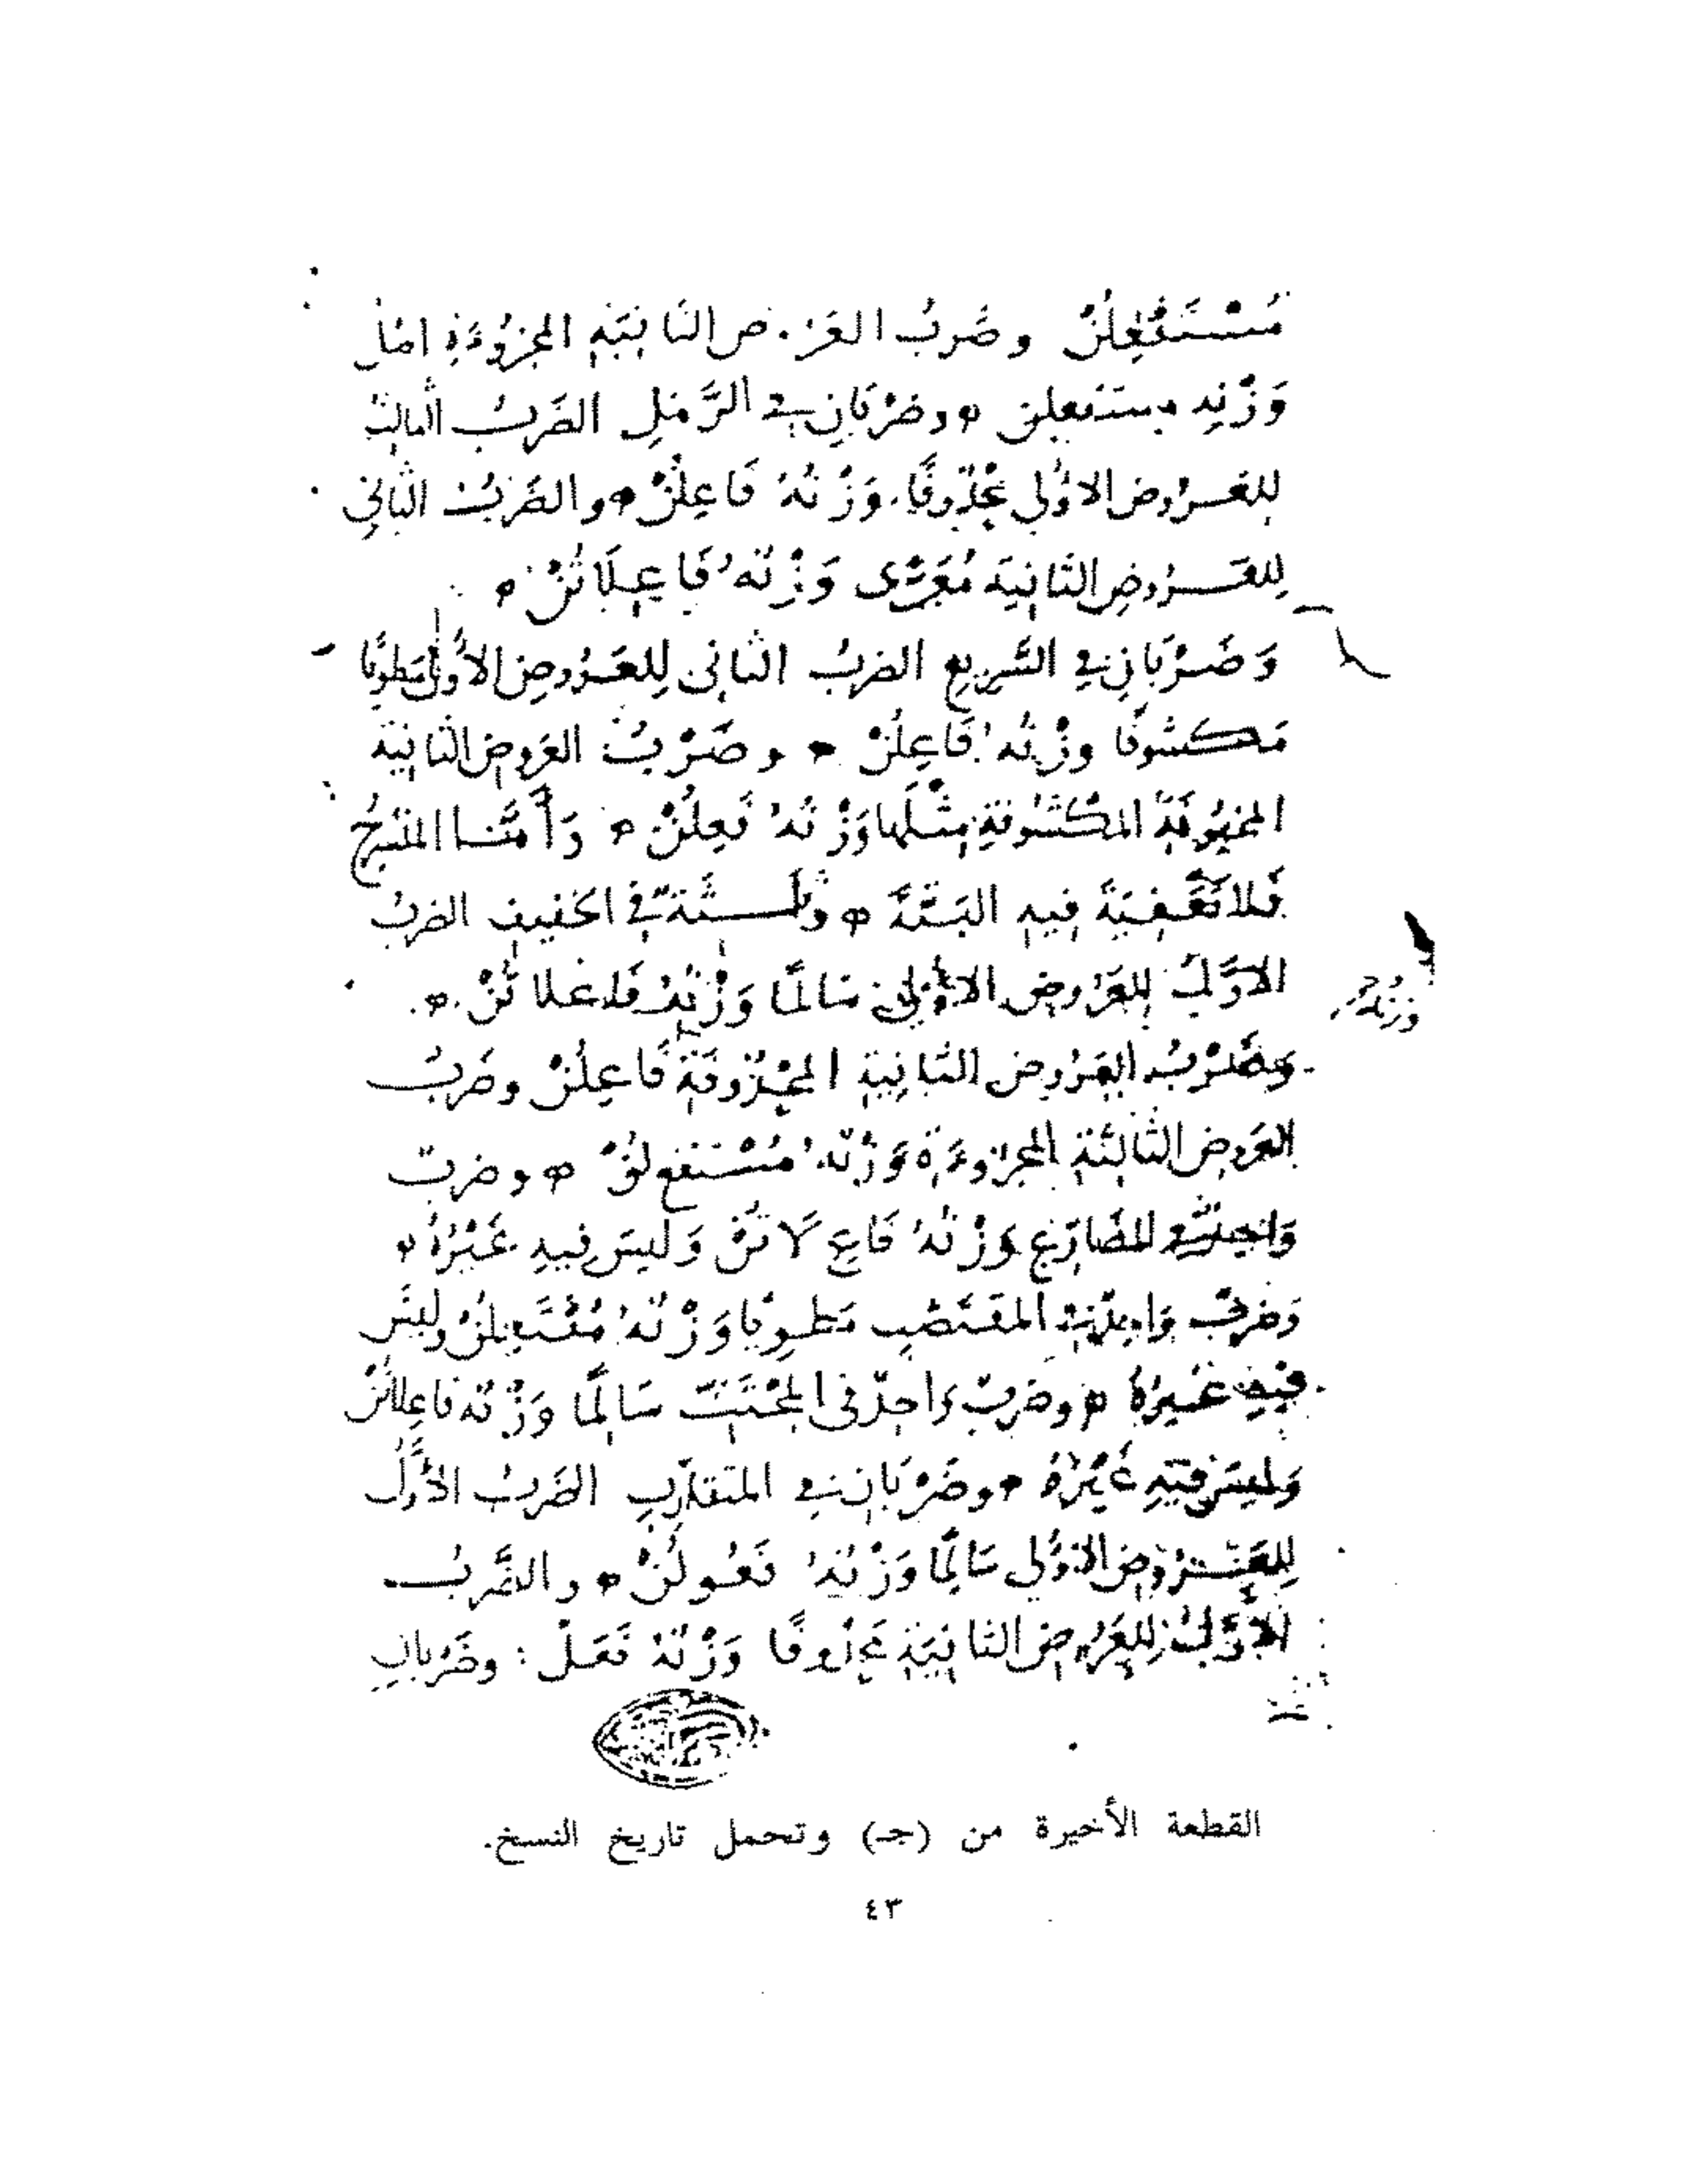 مُسْتَفْعِلُنْ وضَربُ العَرُوض الثَانِيَةِ المجزُوءَةِ
وَزْنه مستفعلن وضَرْبَانِ في الرَّمَلِ الضَربُ الثالث
للعَروض الاوُلي مَحْذُوفًا وَزْنُهُ فَاعِلُنْ والضَربُ الثاني
لِلعَروضِ الثَانِيَة مُعَرَّى وَزْنُهُ فَاعِلَاتُنْ
وَضَرْبَانِ في السَّرِيعِ الضربُ الثاني لِلعَرُوضِ الأُولى مَطويًا
مَكسُوفًا وزْنُهُ فَاعِلُنْ وضَرْبُ العَروضِ الثَانِية
المخبُونَةِ المكْسُوفَةِ مِثْلَها وَزْنُهُ فَعِلُنْ وَأَمَّا المنْسَرِحُ
فَلا تَقْفِيَةَ فِيهِ البَتَّةَ وثلاثة في الخفيف الضربُ
الاوَّلُ للعَرُوضِ الاوُلى سَالمًا وَزْنُهُ فَاعلاتُنْ
وَضَرْبُ العَرُوض الثَانِيَةِ المحْذُوفَةِ فَاعِلُنْ وضَربُ
العَروضِ الثَالثَةِ المجزوءَةِ وَزْنُهُ مُسْتفع لُنْ وضربٌ
وَاحِدٌ للمضَارِع وَزْنُهُ فَاعِ لَا تُنْ وَليسَ فِيهِ غَيْرُهُ
وَضربٌ وَاحِدٌ المقتَضَبِ مَطوِيًا وَزْنُهُ مُفْتَعِلُنْ وليسَ
فِيهِ غَيرُهُ وضَربٌ وَاحِدٌ في المجْتَثِّ سَالمًا وَزْنُه فَاعِلاتُنْ
وَليسَ فِيهِ غَيْرُهُ وضَرْبَانِ في المتقَارِبِ الضَربُ الأوَّلُ
لِلعَروضِ الاوُلي سَالِمًا وَزْنُهُ فَعُولُنْ والضَّربُ
الأوَّلُ لِلعَرُوضِ الثانِيَةِ مَحذُوفًا وَزْنُهُ فَعَلْ وضَرْبانِ
وزنُهُ
القطعة الأخيرة من (جـ) وتحمل تاريخ النسخ.
٤٣